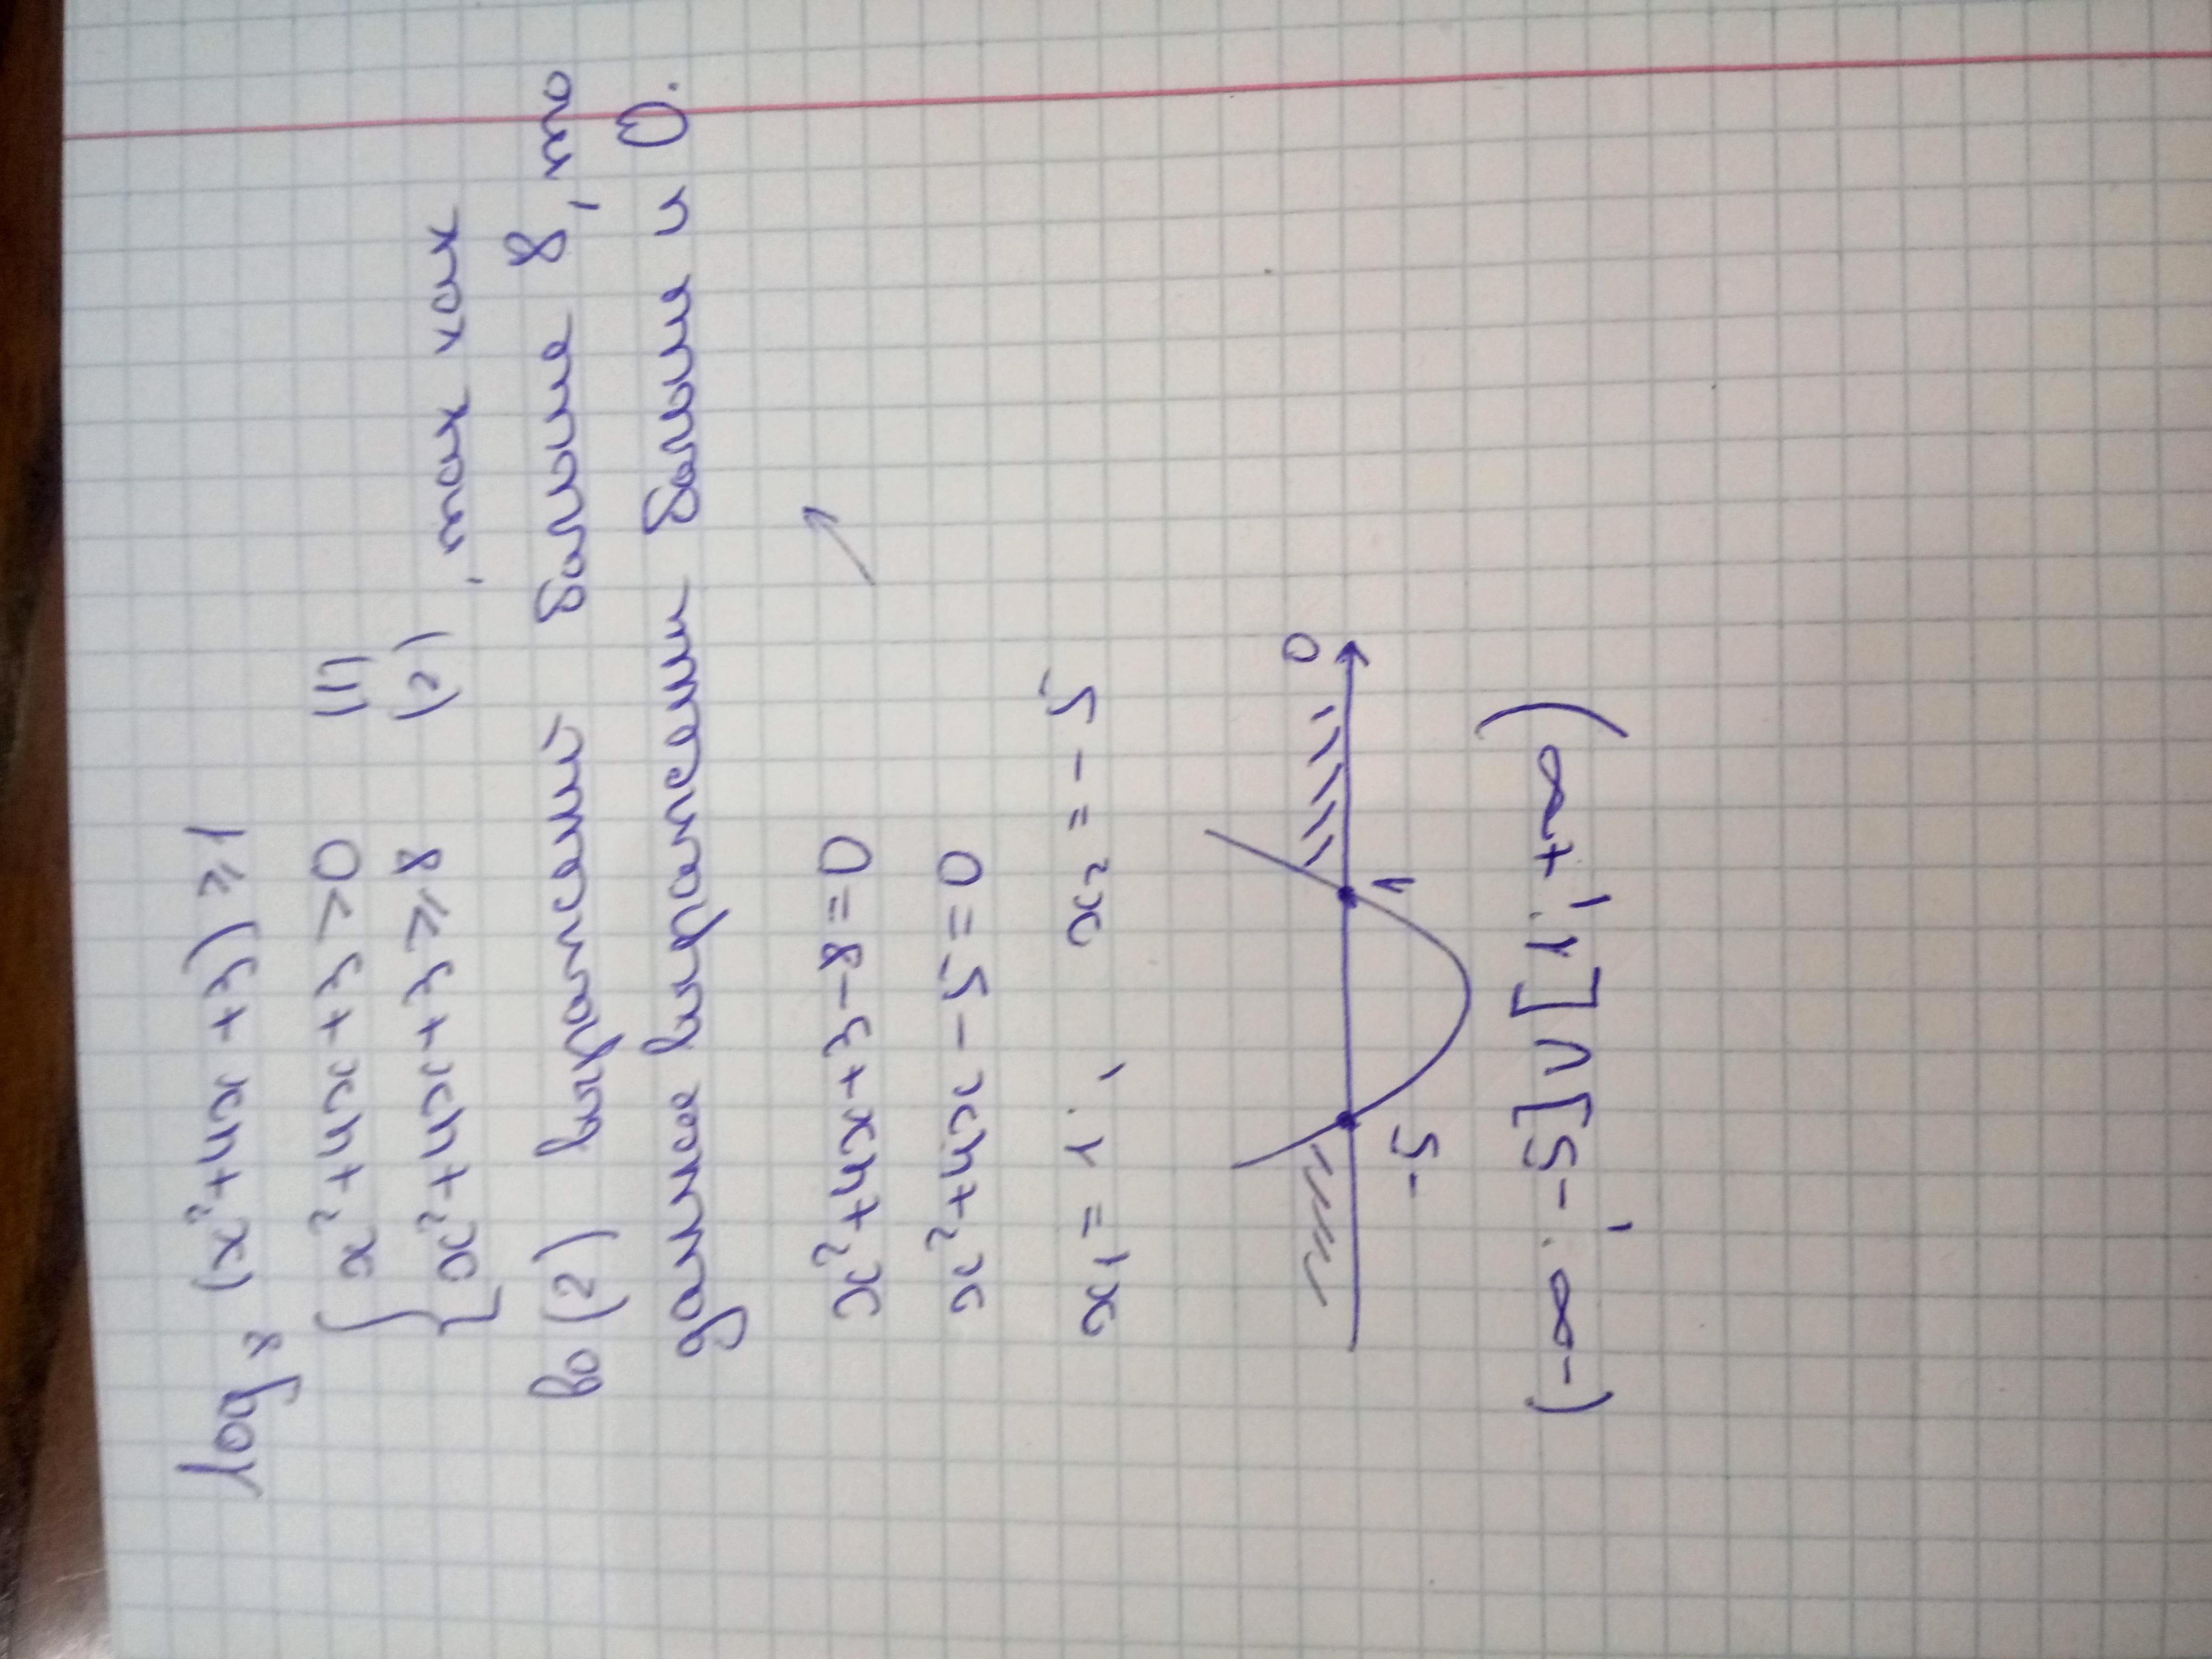 log₈ (x²+4x+3) ≥ 1
{ x²+4x+3 > 0 (1)
x²+4x+3 ≥ 8 (2), так как
во (2) выражение больше 8, то
данное неравенство больше и 0.
x²+4x+3-8=0
x²+4x-5=0
x₁=1; x₂=-5
-5 1 0
(-∞; -5]∪[1; +∞)